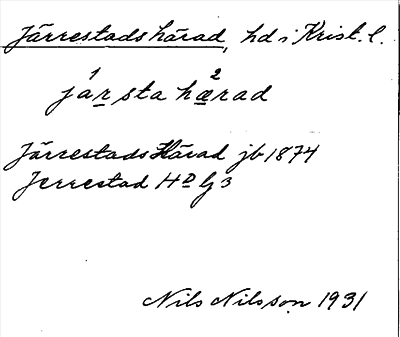 Järrestads härad, hd i Krist. l.
1 2
jarsta hærad
Järrestads Härad jb 1874
Jerrestad HD G3
Nils Nilsson 1931